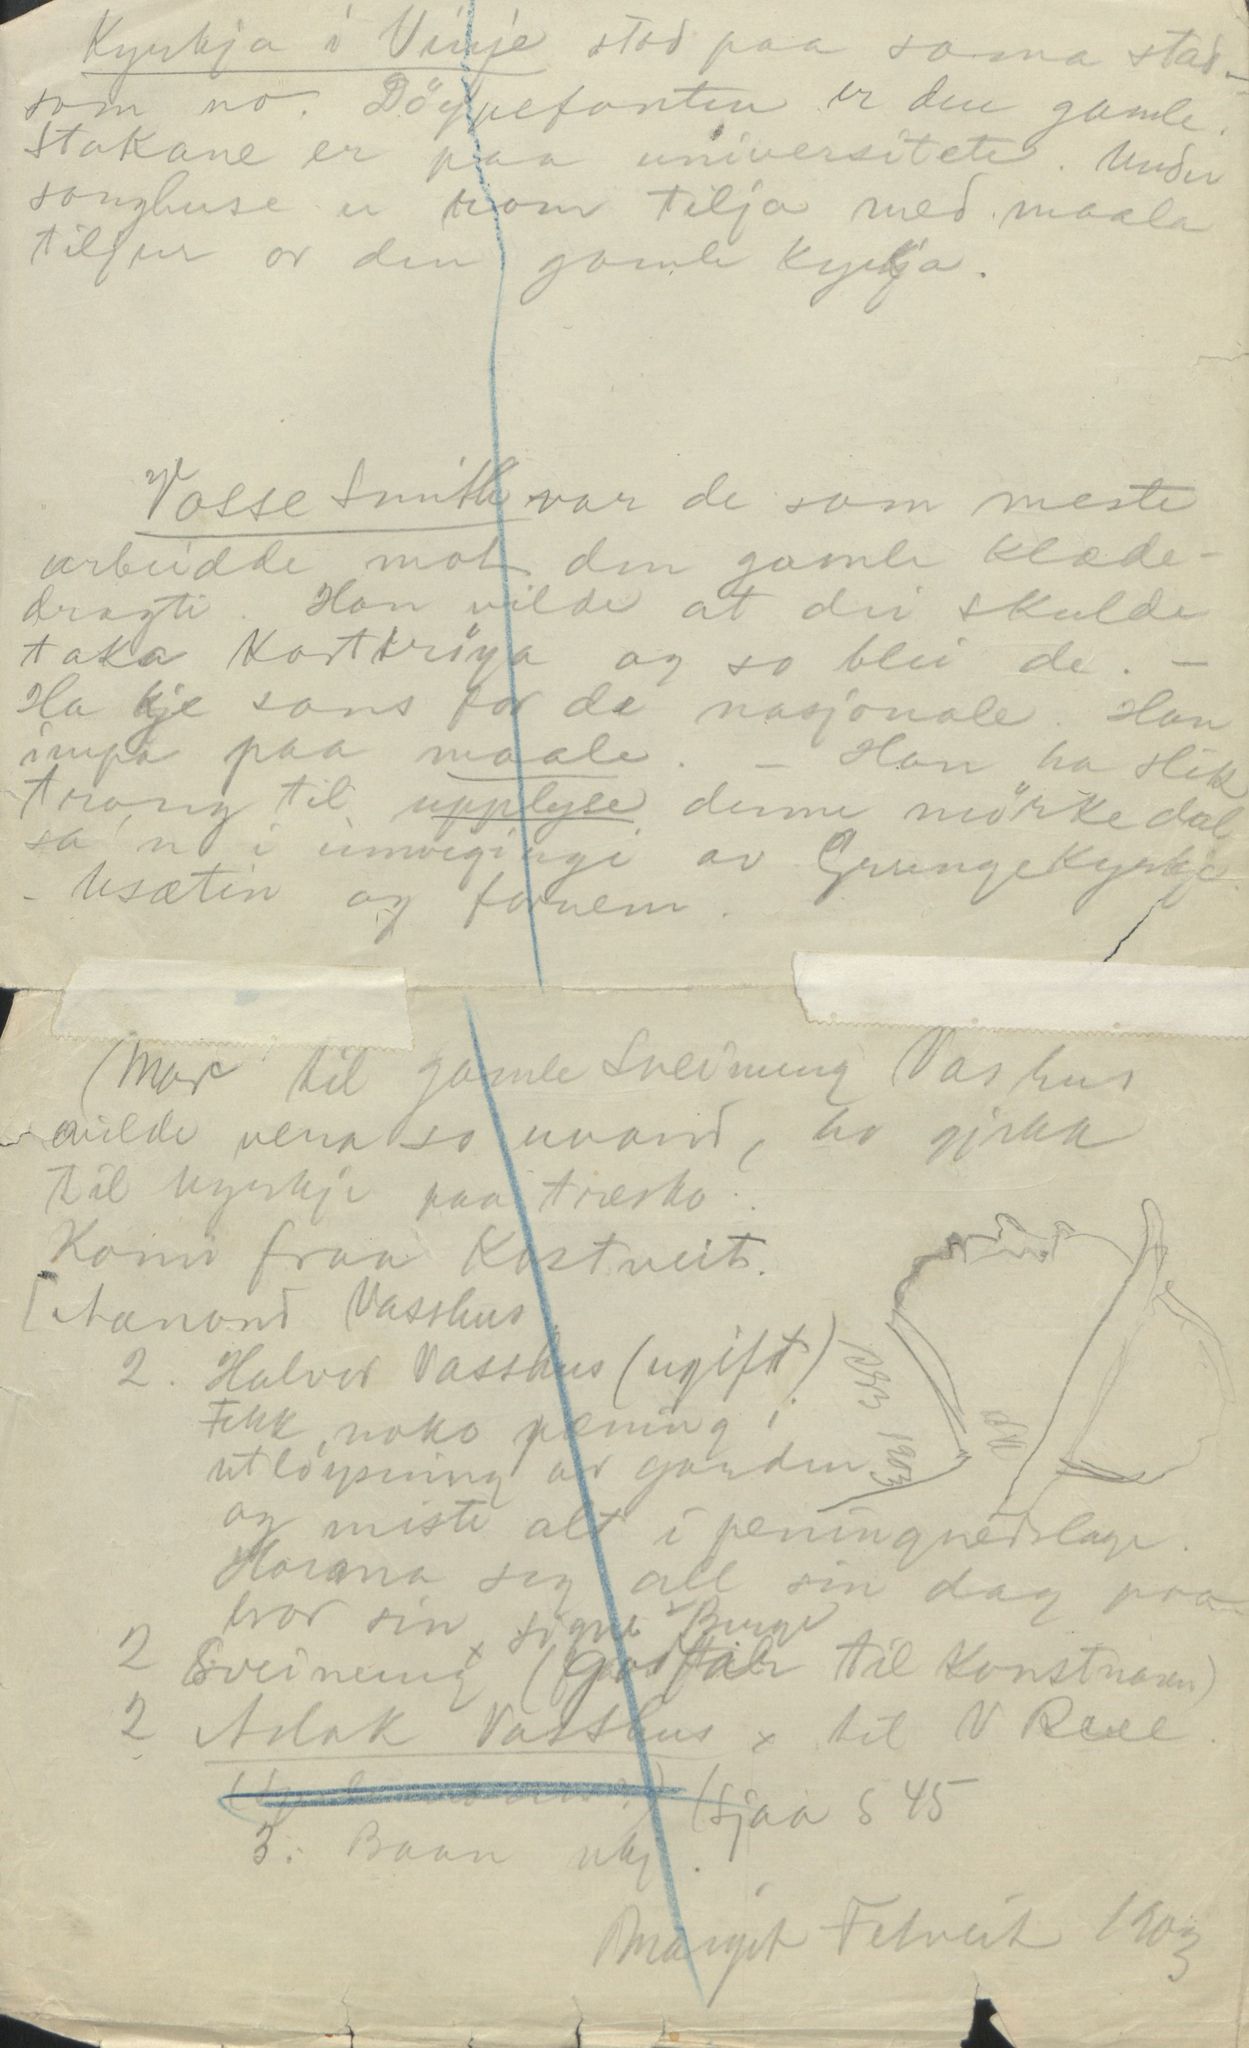 Kyrkja i Vinje stod paa soma stad
som no. Döypefonten er den gamle.
Stakane er paa universitete. Under
songhuse er tilja med maala
tiljur or den gamle kyrkja.
Vosse Smith var de som meste
arbeidde mot den gamle klæde-
dragti. Han vilde at dei skulde
taka Korttröya og so blei de. -
Ha kje sans for de nasjonale. Han
paa maale. - Han ha slik
trong til upplyse denne mörke dal
sa'n i innvigingi av Grungekyrkje
- Usætin og fornem.
(Mor til gamle Sveinung Vashus
vilde vera so uvand, ho gjekk
til kyrkje paa træsko.
Komi fraa Kostveit.
[Aanond Vasshus
2. Halvor Vasshus (ugift)
Fekk noko pening i
utlöysning av garden
og miste alt i peningnedslage.
seg all sin dag paa
bror sin x Signe Burge
2 Sveinung (godfar til Konstnaren)
2 Aslak Vasshus x til V Rue
(sjaa s 45
3. Baan ukj.
Margit Tetveit 1903
1903